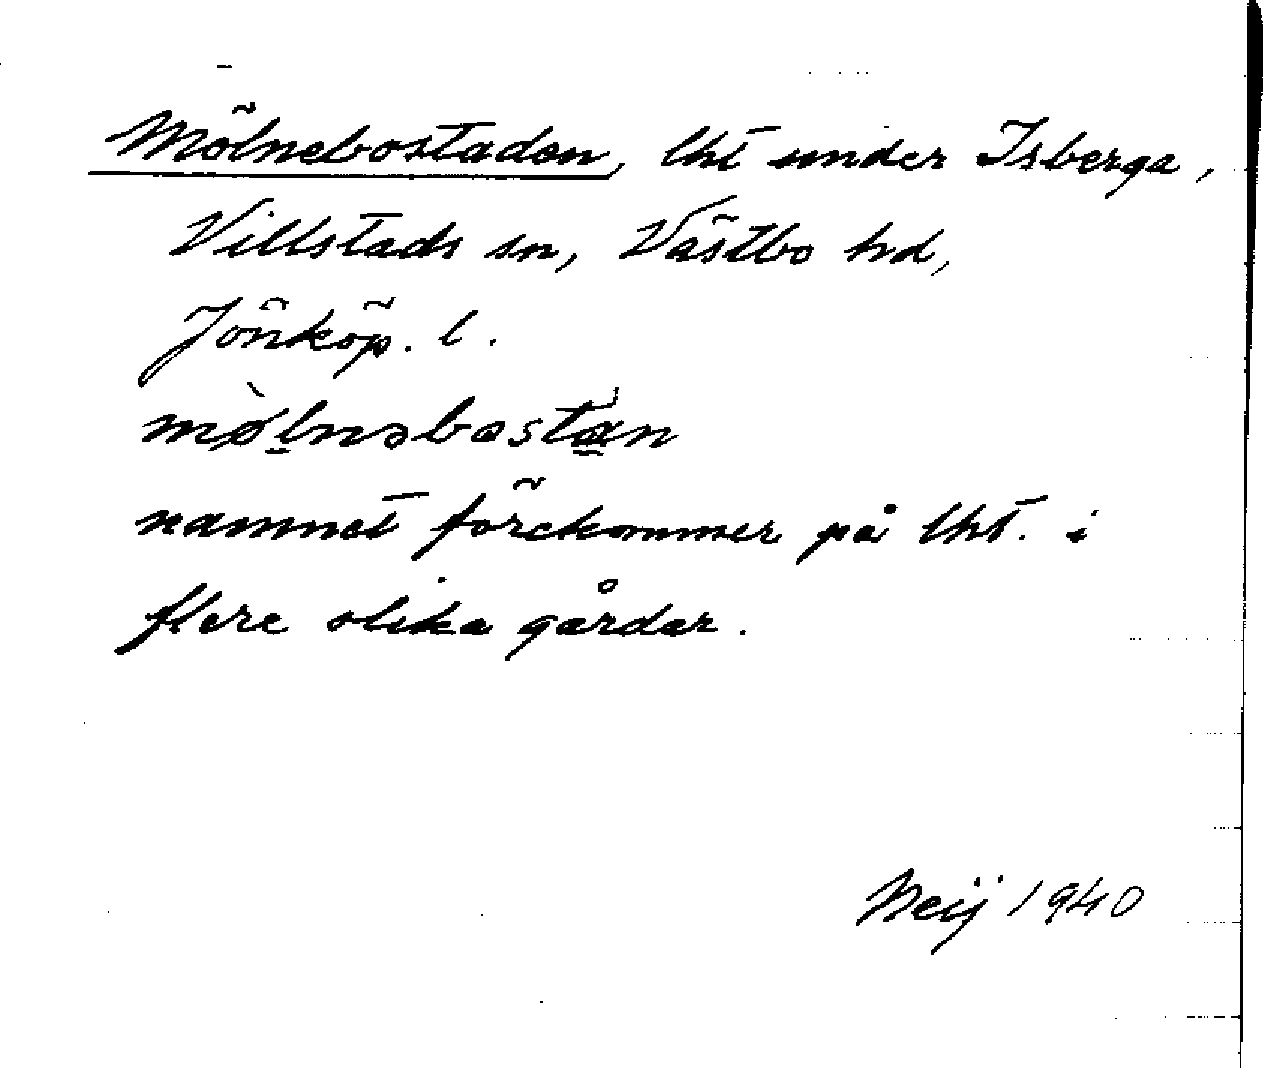 Mölnebostaden, lht under Isberga,
Villstads sn, Västbo hd,
Jönköp. l.
mø̀lnəbostan
namnet förekommer på lht. i
flere olika gårdar.
Meij 1940